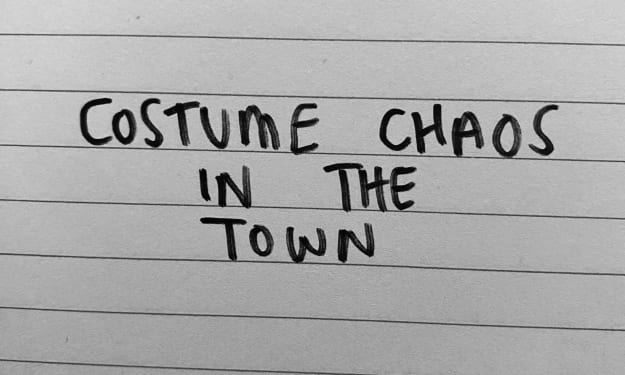 COSTUME CHAOS
IN THE
TOWN